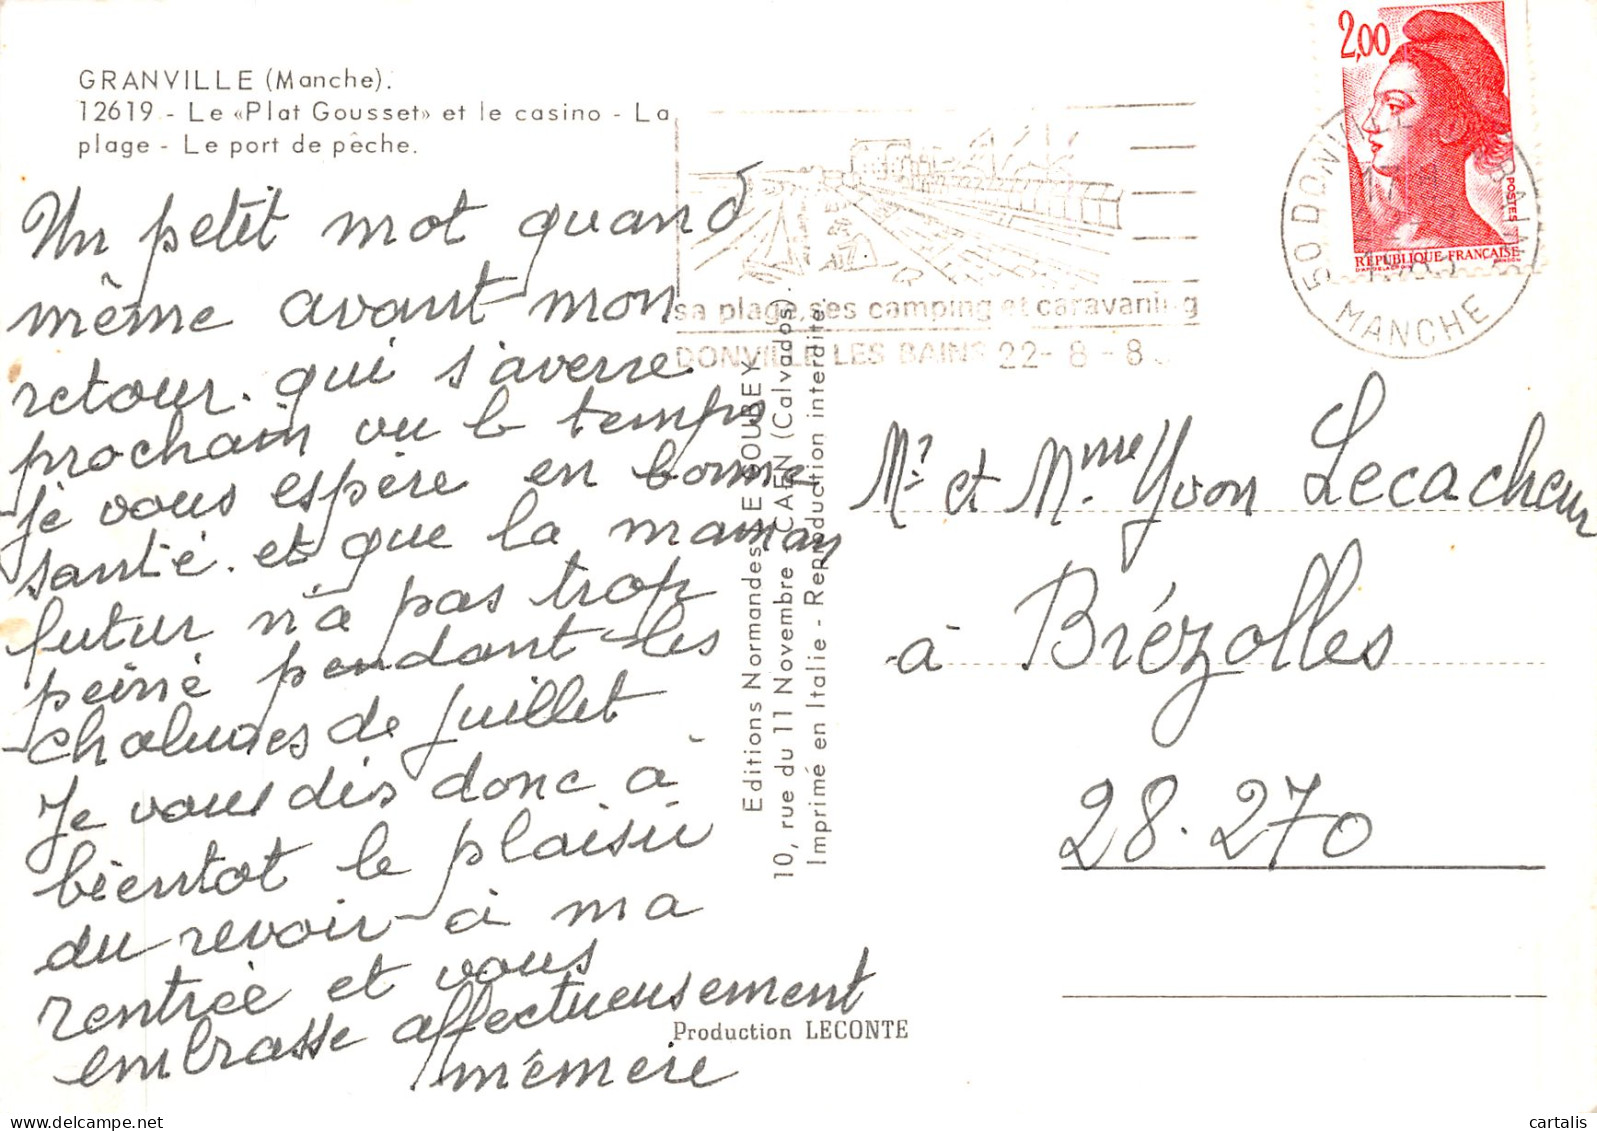 GRANVILLE (Manche).
12619 - Le «Plat Gousset» et le casino - La
plage - Le port de pêche.
Un petit mot quand
même avant mon
retour. qui s'averre
prochain vu le temps
je vous espère en bonne
santé. et que la maman
futur n'a pas trop
peiné pendant les
chaludes de juillet
Je vous dis donc à
bientot le plaisir
du revoir à ma
rentrée et vous
embrasse affectueusement
mémère
Editions Normandes LE GOUBEY
10, rue du 11 Novembre - CAEN (Calvados).
Imprimé en Italie - Reproduction interdite.
Production LECONTE
sa plage, ses camping et caravaning
DONVILLE LES BAINS 22-8-8
2,00
POSTES
REPUBLIQUE FRANCAISE
50 DONVILLE
MANCHE
Mr et Mme Yvon Lecacheur
à Brézolles
28.270
cartalis